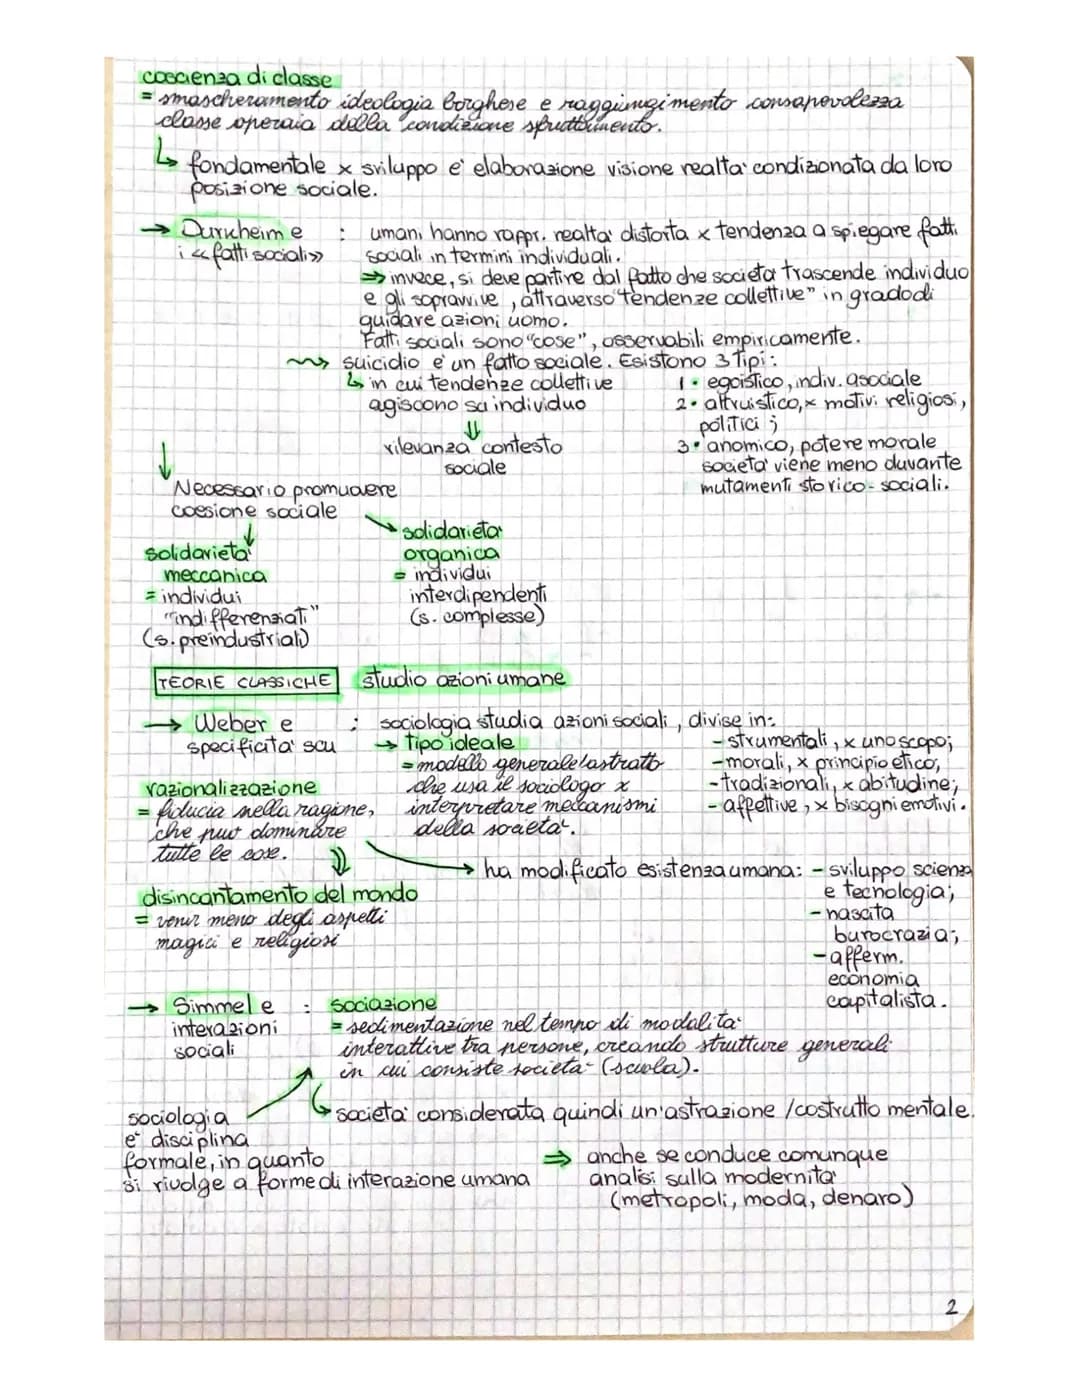 coscienza di classe
= smascheramento ideologia borghese e raggiungimento consapevolezza
classe operaia della condizione sfruttamento.
↳ fondamentale x sviluppo e' elaborazione visione realta' condizionata da loro
posizione sociale.
→ Durkheim e : umani hanno rappr. realta' distorta x tendenza a spiegare fatti
i «fatti sociali» sociali in termini individuali.
⇒ invece, si deve partire dal fatto che societa' trascende individuo
e gli sopravvive, attraverso "tendenze collettive" in grado di
guidare azioni uomo.
Fatti sociali sono "cose", osservabili empiricamente.
suicidio e' un fatto sociale. Esistono 3 tipi:
↳ in cui tendenze collettive
agiscono su individuo
⇓
rilevanza contesto
sociale
1• egoistico, indiv. asociale
2• altruistico, x motivi religiosi,
politici;
3• anomico, potere morale
societa' viene meno davante
mutamenti storico-sociali.
↓
Necessario promuovere
coesione sociale
solidarieta'
meccanica
= individui
"indifferenziati"
(s. preindustriali)
solidarieta'
organica
= individui
interdipendenti
(s. complesse)
TEORIE CLASSICHE studio azioni umane
→ Weber e : sociologia studia azioni sociali, divise in:
specificita' scu
→ Tipo ideale
= modello generale/astratto
che usa il sociologo x
interpretare meccanismi
della societa'.
- strumentali, x uno scopo;
- morali, x principio etico;
- tradizionali, x abitudine;
- affettive, x bisogni emotivi.
razionalizzazione
= fiducia nella ragione,
che puo' dominare
tutte le cose.
⇓
→ ha modificato esistenza umana: - sviluppo scienza
e tecnologia;
- nascita
burocrazia;
- afferm.
economia
capitalista.
disincantamento del mondo
= venir meno degli aspetti
magici e religiosi
→ Simmel e : sociazione
interazioni
sociali
= sedimentazione nel tempo di modalita'
interattive tra persone, creando strutture generali
in cui consiste societa' (scuola).
↳ societa' considerata quindi un'astrazione / costrutto mentale.
sociologia
e' disciplina
formale, in quanto
si rivolge a forme di interazione umana
⇒ anche se conduce comunque
analisi sulla modernita'
(metropoli, moda, denaro)
2